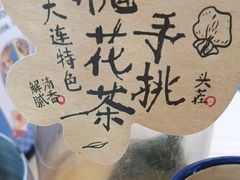 手挑
头茬
槐花茶
大连特色
清香
解腻